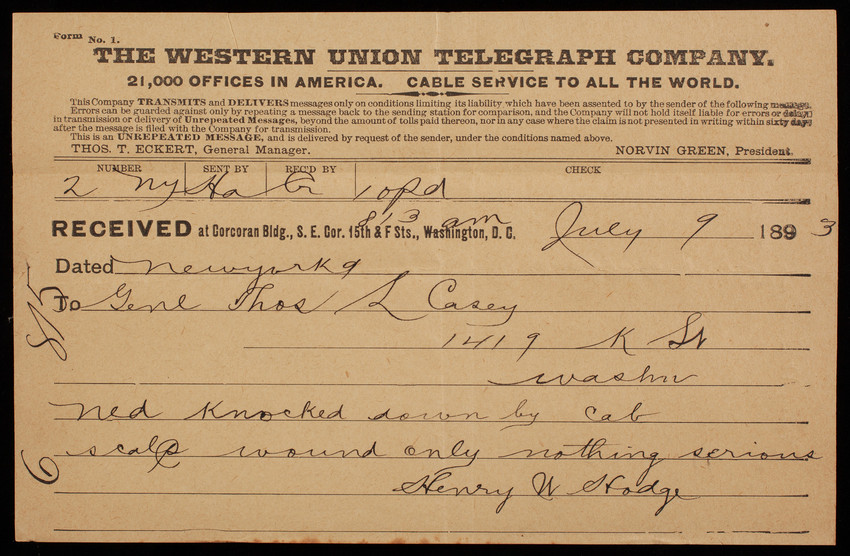 Form No. 1.
THE WESTERN UNION TELEGRAPH COMPANY.
21,000 OFFICES IN AMERICA. CABLE SERVICE TO ALL THE WORLD.
This Company TRANSMITS and DELIVERS messages only on conditions limiting its liability which have been assented to by the sender of the following message.
Errors can be guarded against only by repeating a message back to the sending station for comparison, and the Company will not hold itself liable for errors or delays
in transmission or delivery of Unrepeated Messages, beyond the amount of tolls paid thereon, nor in any case where the claim is not presented in writing within sixty days
after the message is filed with the Company for transmission.
This is an UNREPEATED MESSAGE, and is delivered by request of the sender, under the conditions named above.
THOS. T. ECKERT, General Manager. NORVIN GREEN, President.
NUMBER SENT BY REC'D BY CHECK
2 Ny Ha 10pd
813 am
RECEIVED at Corcoran Bldg., S. E. Cor. 15th & F Sts., Washington, D. C. July 9 1893
Dated Newyork 9
To Genl Thos L Casey
1419 K St
Washn
845
Ned Knocked down by cab
scalp wound only nothing serious
Henry W Hodge
6